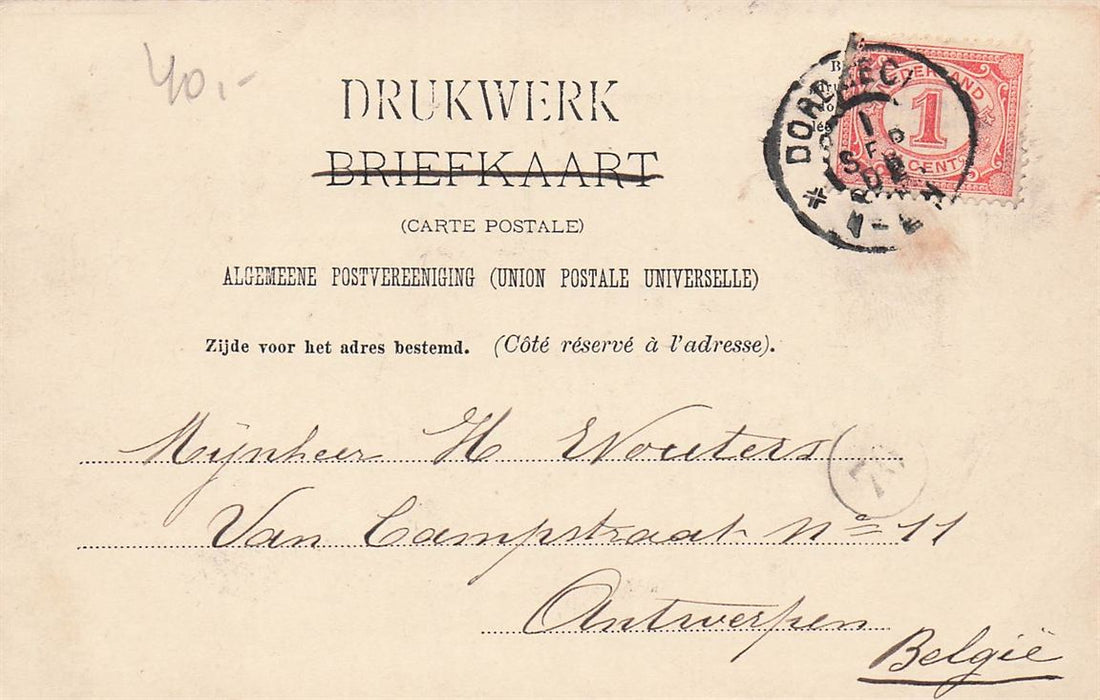 40,-
DRUKWERK
BRIEFKAART
(CARTE POSTALE)
ALGEMEENE POSTVEREENIGING (UNION POSTALE UNIVERSELLE)
Zijde voor het adres bestemd. (Côté réservé à l'adresse).
1
CENT
Mijnheer H Wouters
Van Campstraat No 11
Antwerpen
België